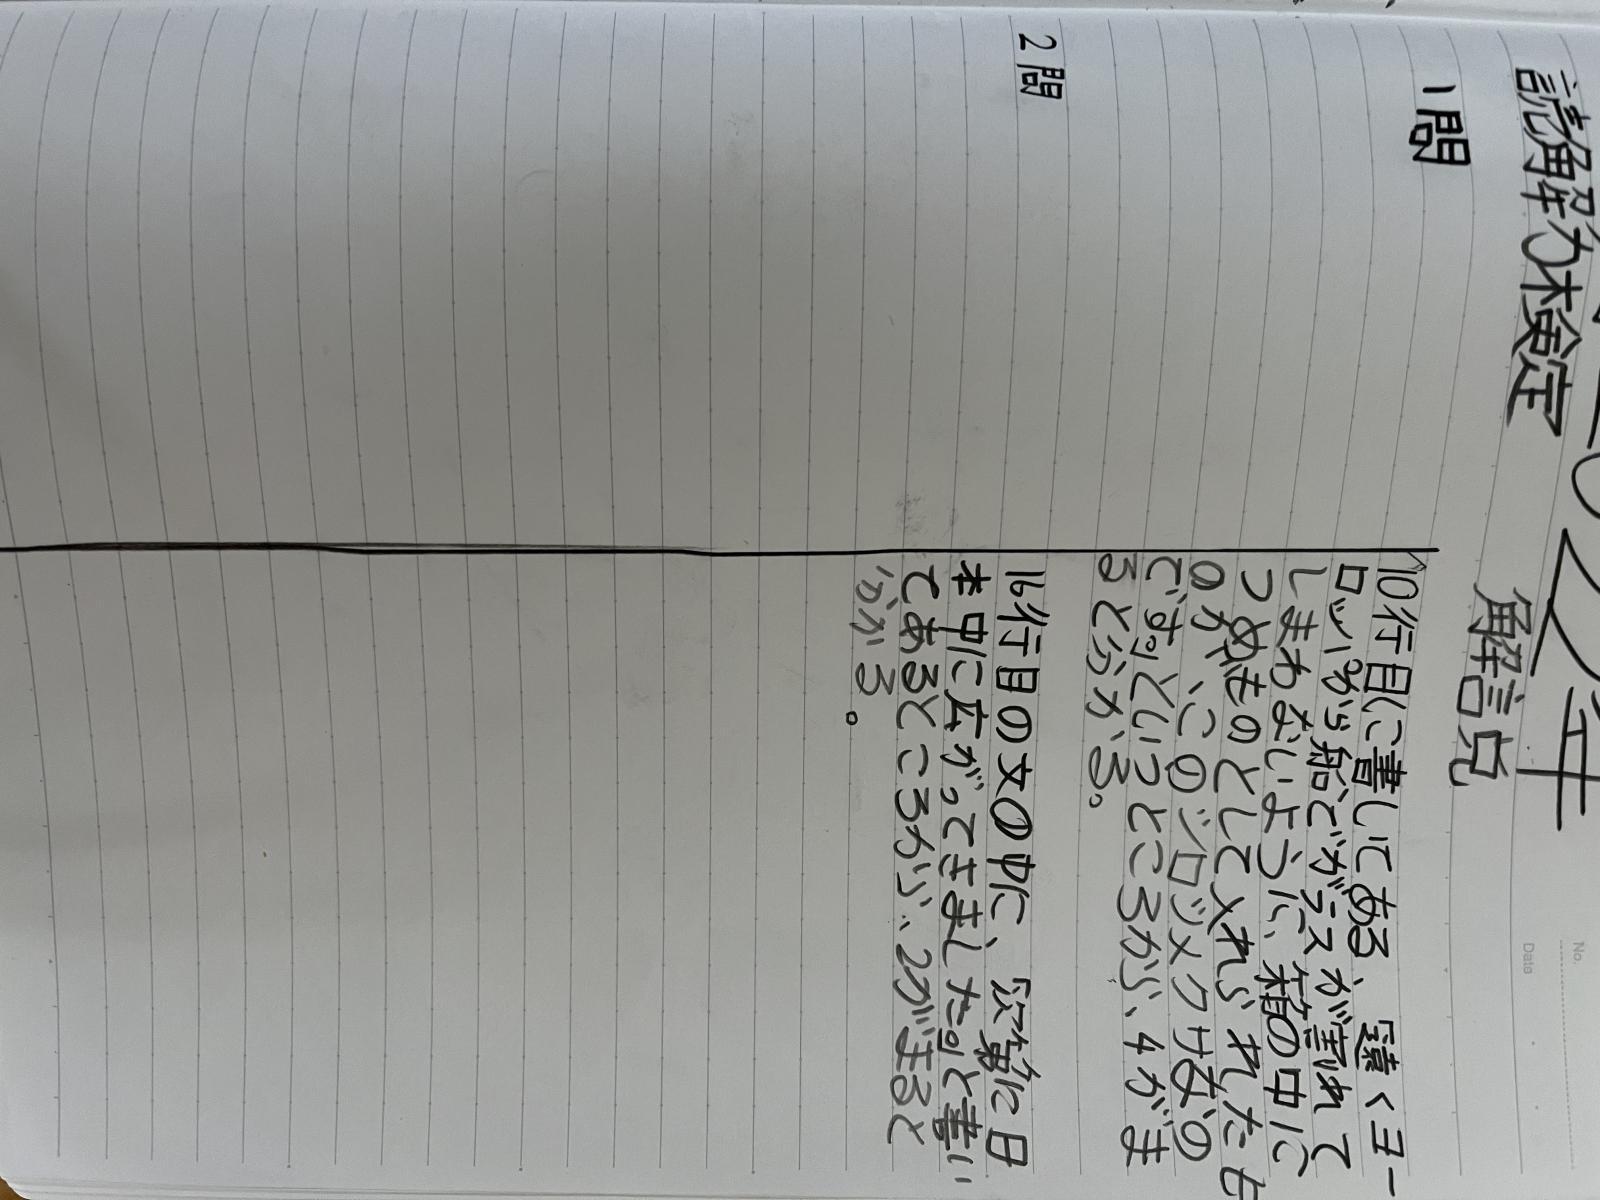 読解力検定
解説
1問
10行目に書いてある、「遠くヨー
ロッパから船でガラスが割れて
しまわないように、箱の中に
つめものとして入れられたも
のが、このシロツメクサなの
です」というところから、4がま
ると分かる。
2問
16行目の文の中に、「次第に日
本中に広がってきました」と書い
てあるところから、2がまると
分かる。
No.
Date